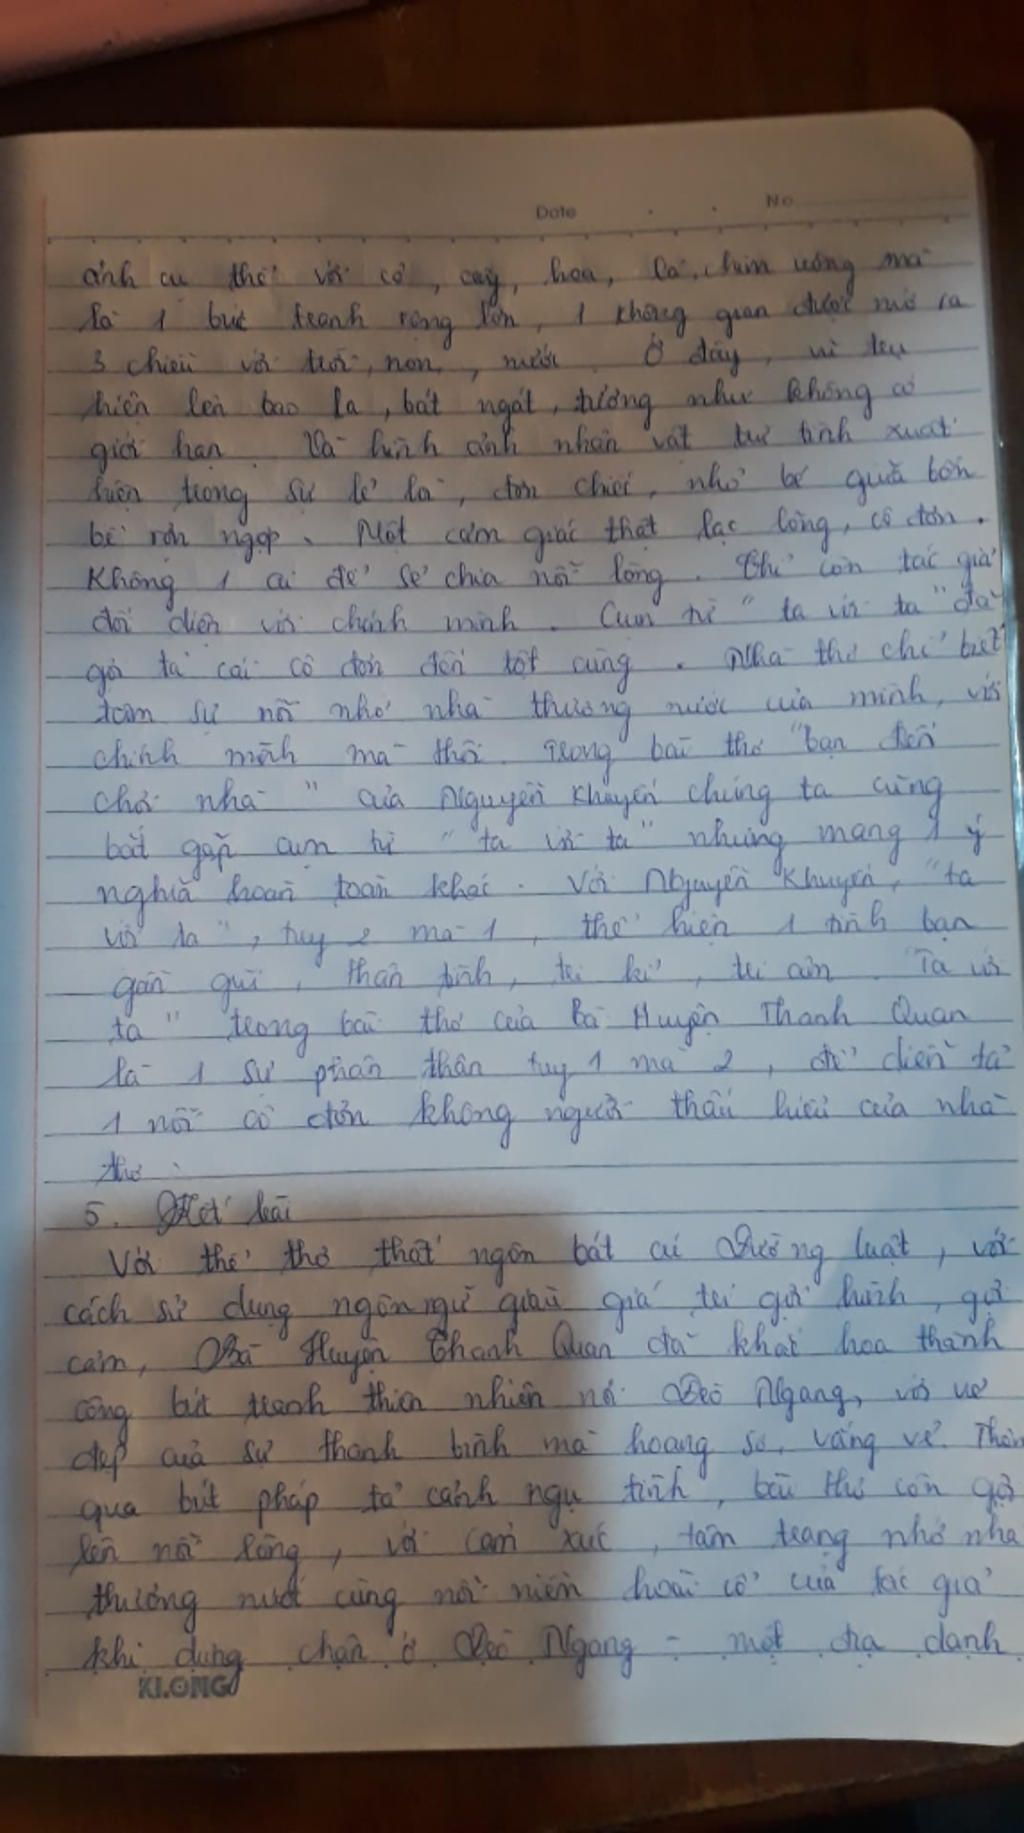 Date No
ảnh cụ thể với cỏ, cây, hoa, lá, chim uông mà
là 1 bức tranh rộng lớn, 1 không gian được mở ra
3 chiều với trời, non, nước. Ở đây, vũ trụ
hiện lên bao la, bát ngát, tưởng như không có
giới hạn. Và hình ảnh nhân vật trữ tình xuất
hiện trong sự lẻ loi, đơn chiếc, nhỏ bé giữa bốn
bề rợn ngợp. Một cảm giác thật lạc lõng, cô đơn.
Không 1 ai để sẻ chia nỗi lòng. Chỉ còn tác giả
đối diện với chính mình. Cụm từ "ta với ta" đã
gợi tả cái cô đơn đến tột cùng. Nhà thơ chỉ biết
tâm sự nỗi nhớ nhà thương nước của mình, với
chính mình mà thôi. Trong bài thơ "bạn đến
chơi nhà" của Nguyễn Khuyến chúng ta cũng
bắt gặp cụm từ "ta với ta" nhưng mang 1 ý
nghĩa hoàn toàn khác. Với Nguyễn Khuyến, "ta
với ta", tuy 2 mà 1, thể hiện 1 tình bạn
gần gũi, thân tình, tri kỉ, tri âm. Ta với
ta" trong bài thơ của Bà Huyện Thanh Quan
là 1 sự phân thân tuy 1 mà 2, để diễn tả
1 nỗi cô đơn không người thấu hiểu của nhà
thơ.
5. Kết bài
Với thể thơ thất ngôn bát cú Đường luật, với
cách sử dụng ngôn ngữ giàu giá trị gợi hình, gợi
cảm, Bà Huyện Thanh Quan đã khắc họa thành
công bức tranh thiên nhiên nơi Đèo Ngang, với vẻ
đẹp của sự thanh bình mà hoang sơ, vắng vẻ. Thôn
qua bút pháp tả cảnh ngụ tình, bài thơ còn gợi
lên nỗi lòng, với cảm xúc, tâm trạng nhớ nhà
thương nước cùng nỗi niềm hoài cổ của tác giả
khi dừng chân ở Đèo Ngang - một địa danh
KLONG